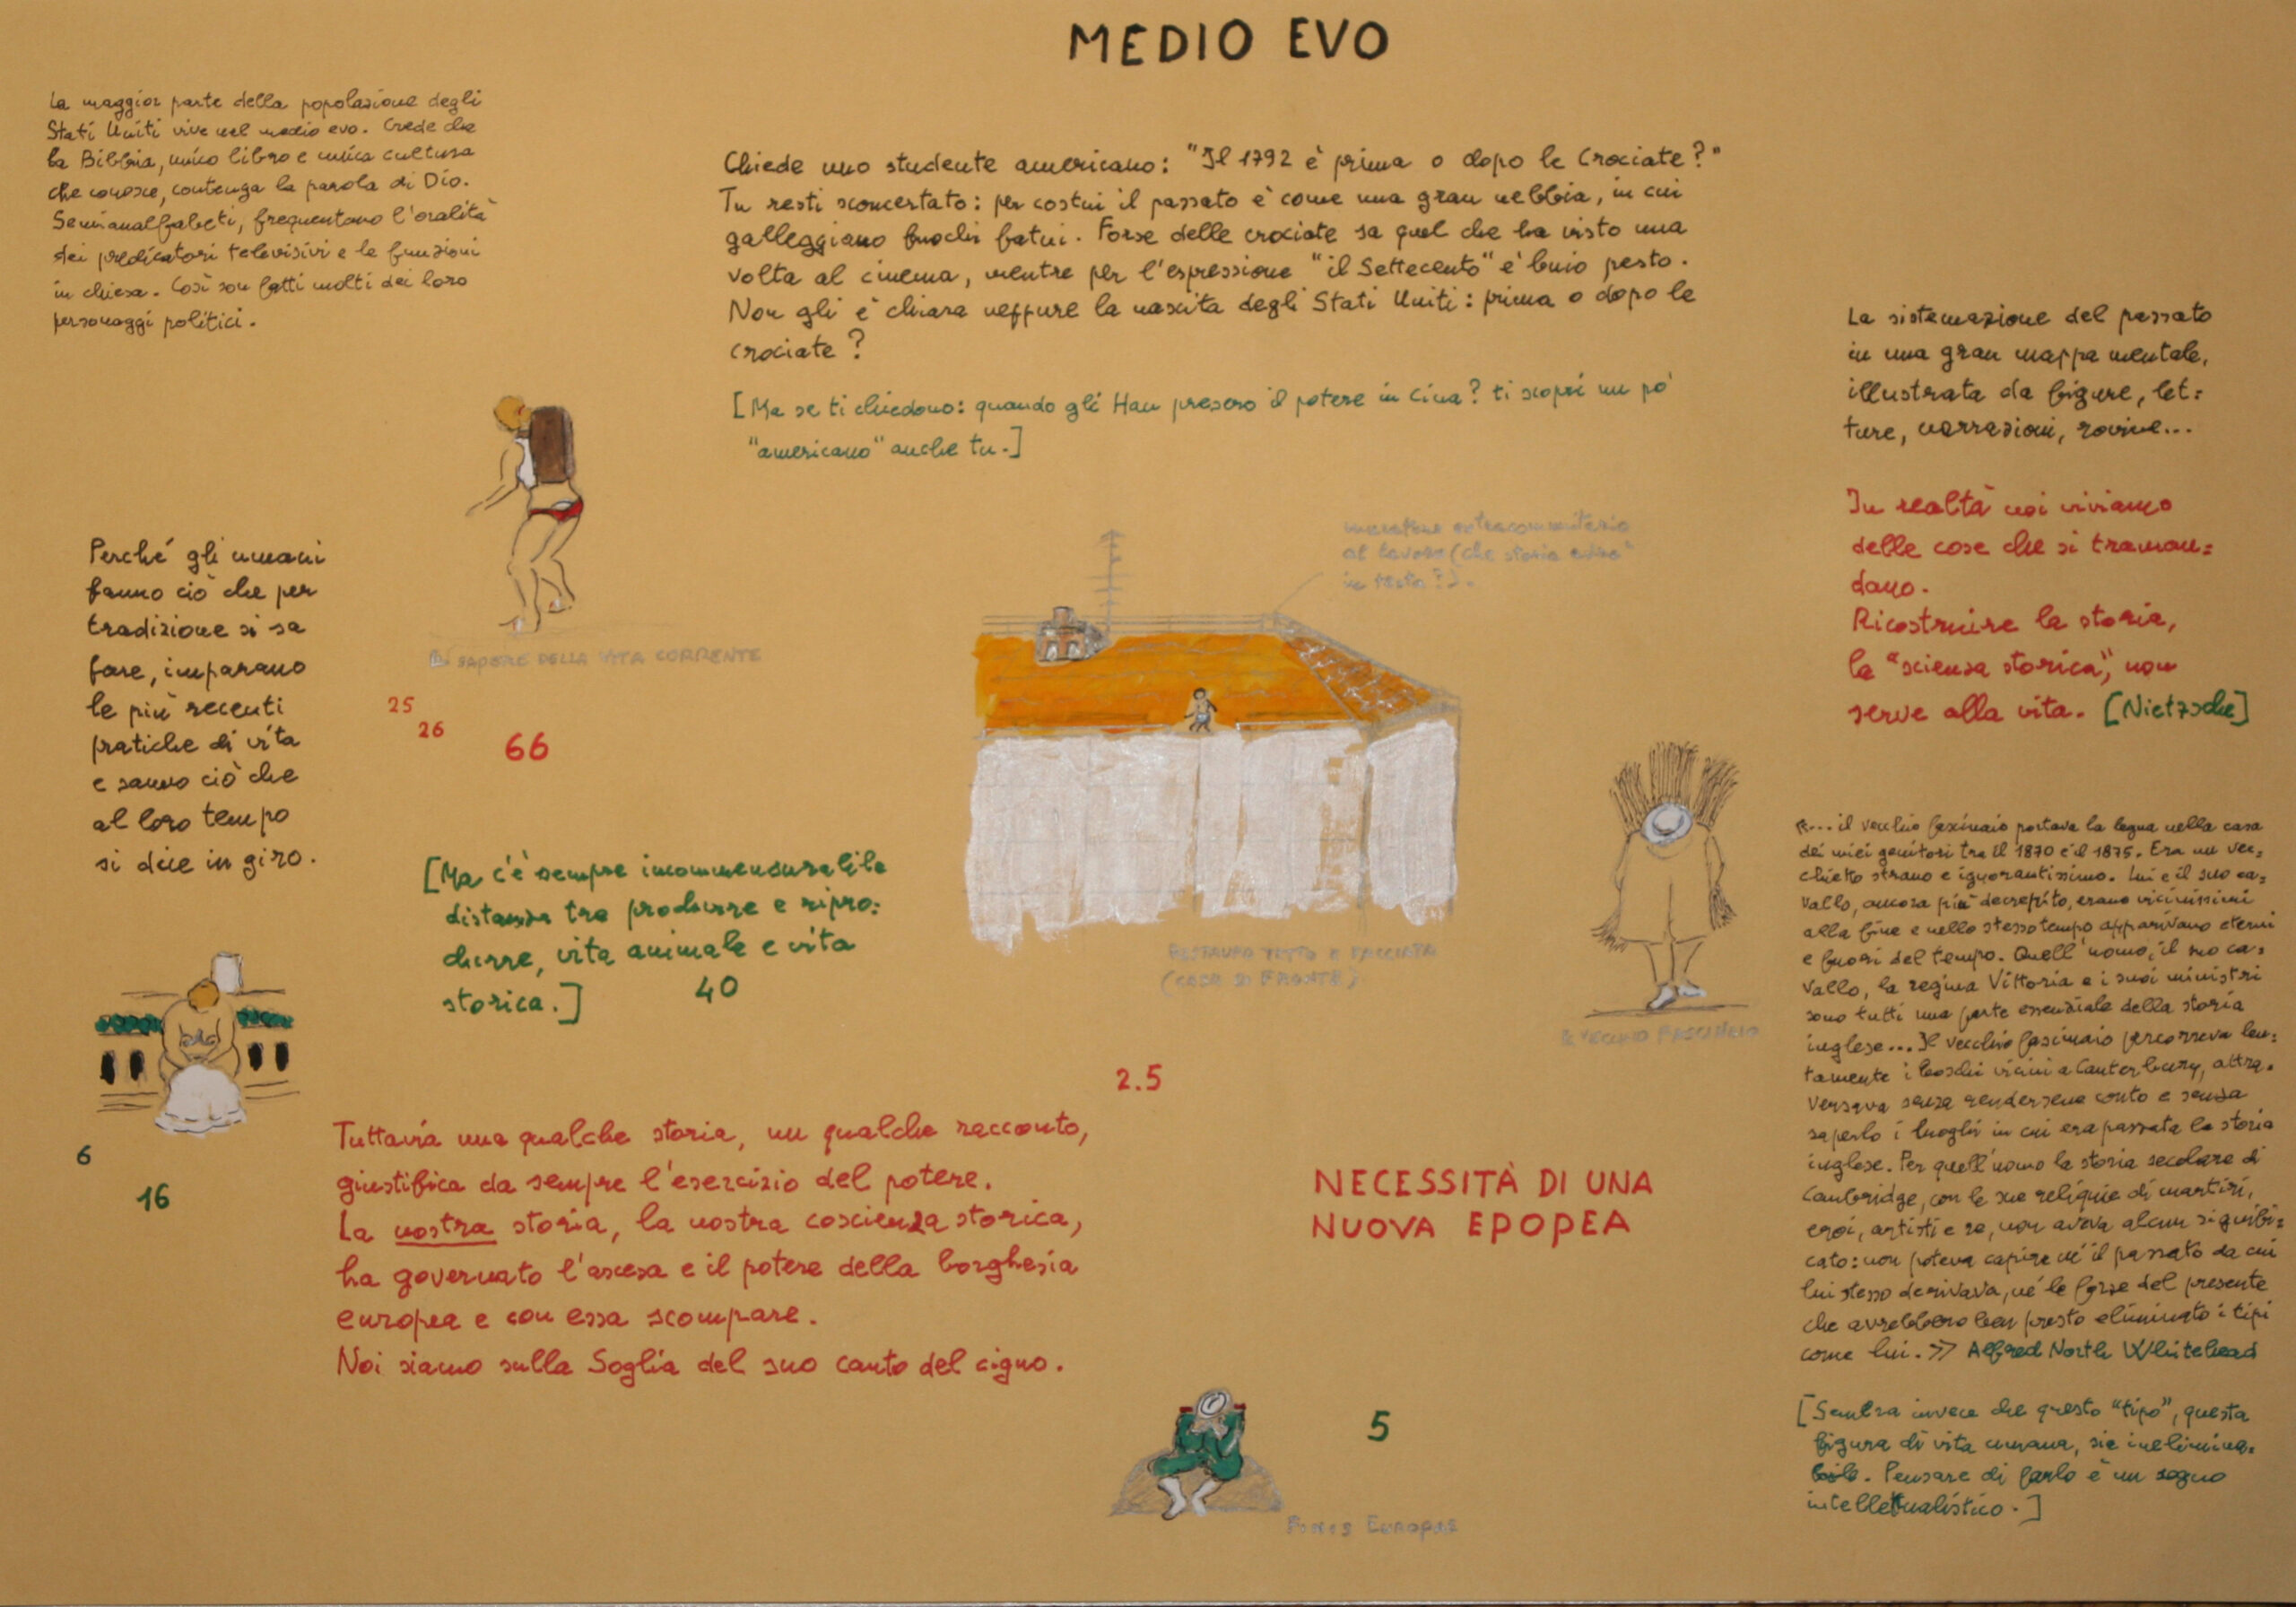 MEDIO EVO
La maggior parte della popolazione degli
Stati Uniti vive nel medio evo. Crede che
la Bibbia, unico libro e unica cultura
che conosce, contenga la parola di Dio.
Semianalfabeti, frequentano l'oralità
dei predicatori televisivi e le funzioni
in chiesa. Così son fatti molti dei loro
personaggi politici.
Chiede uno studente americano: "Il 1792 è prima o dopo le Crociate?"
Tu resti sconcertato: per costui il passato è come una gran nebbia, in cui
galleggiano fuochi fatui. Forse delle crociate sa quel che ha visto una
volta al cinema, mentre per l'espressione "il Settecento" è buio pesto.
Non gli è chiara neppure la nascita degli Stati Uniti: prima o dopo le
crociate?
[Ma se ti chiedono: quando gli Han presero il potere in Cina? ti scopri un pò
"americano" anche tu.]
La sistemazione del passato
in una gran mappa mentale,
illustrata da figure, let=
ture, narrazioni, rovine...
In realtà noi viviamo
delle cose che si traman=
dano.
Ricostruire la storia,
la "scienza storica", non
serve alla vita. [Nietzsche]
Perché gli umani
fanno ciò che per
tradizione si sa
fare, imparano
le più recenti
pratiche di vita
e sanno ciò che
al loro tempo
si dice in giro.
SAPERE DELLA VITA CORRENTE
25
26
66
muratore extracomunitario
al lavoro (che storia
in testa?).
[Ma c'è sempre incommensurabile
distanza tra produrre e ripro=
durre, vita animale e vita
storica.]
40
RESTAURO TETTO E FACCIATA
(CASA DI FRONTE)
IL VECCHIO FASCINAIO
«... il vecchio fascinaio portava la legna nella casa
dei miei genitori tra il 1870 e il 1875. Era un vec=
chietto strano e ignorantissimo. Lui e il suo ca=
vallo, ancora più decrepito, erano vicinissimi
alla fine e nello stesso tempo apparivano eterni
e fuori del tempo. Quell'uomo, il suo ca=
vallo, la regina Vittoria e i suoi ministri
sono tutti una parte essenziale della storia
inglese... Il vecchio fascinaio percorreva len=
tamente i boschi vicini a Canterbury, attra=
versava senza rendersene conto e senza
saperlo i luoghi in cui era passata la storia
inglese. Per quell'uomo la storia secolare di
Cambridge, con le sue reliquie di martiri,
eroi, artisti e re, non aveva alcun signifi=
cato: non poteva capire né il passato da cui
lui stesso derivava, né le forze del presente
che avrebbero ben presto eliminato i tipi
come lui.» Alfred North Whitehead
[Sembra invece che questo "tipo", questa
figura di vita umana, sia inelimina=
bile. Pensare di farlo è un sogno
intellettualistico.]
6
16
2.5
Tuttavia una qualche storia, un qualche racconto,
giustifica da sempre l'esercizio del potere.
La nostra storia, la nostra coscienza storica,
ha governato l'ascesa e il potere della borghesia
europea e con essa scompare.
Noi siamo sulla Soglia del suo canto del cigno.
NECESSITÀ DI UNA
NUOVA EPOPEA
5